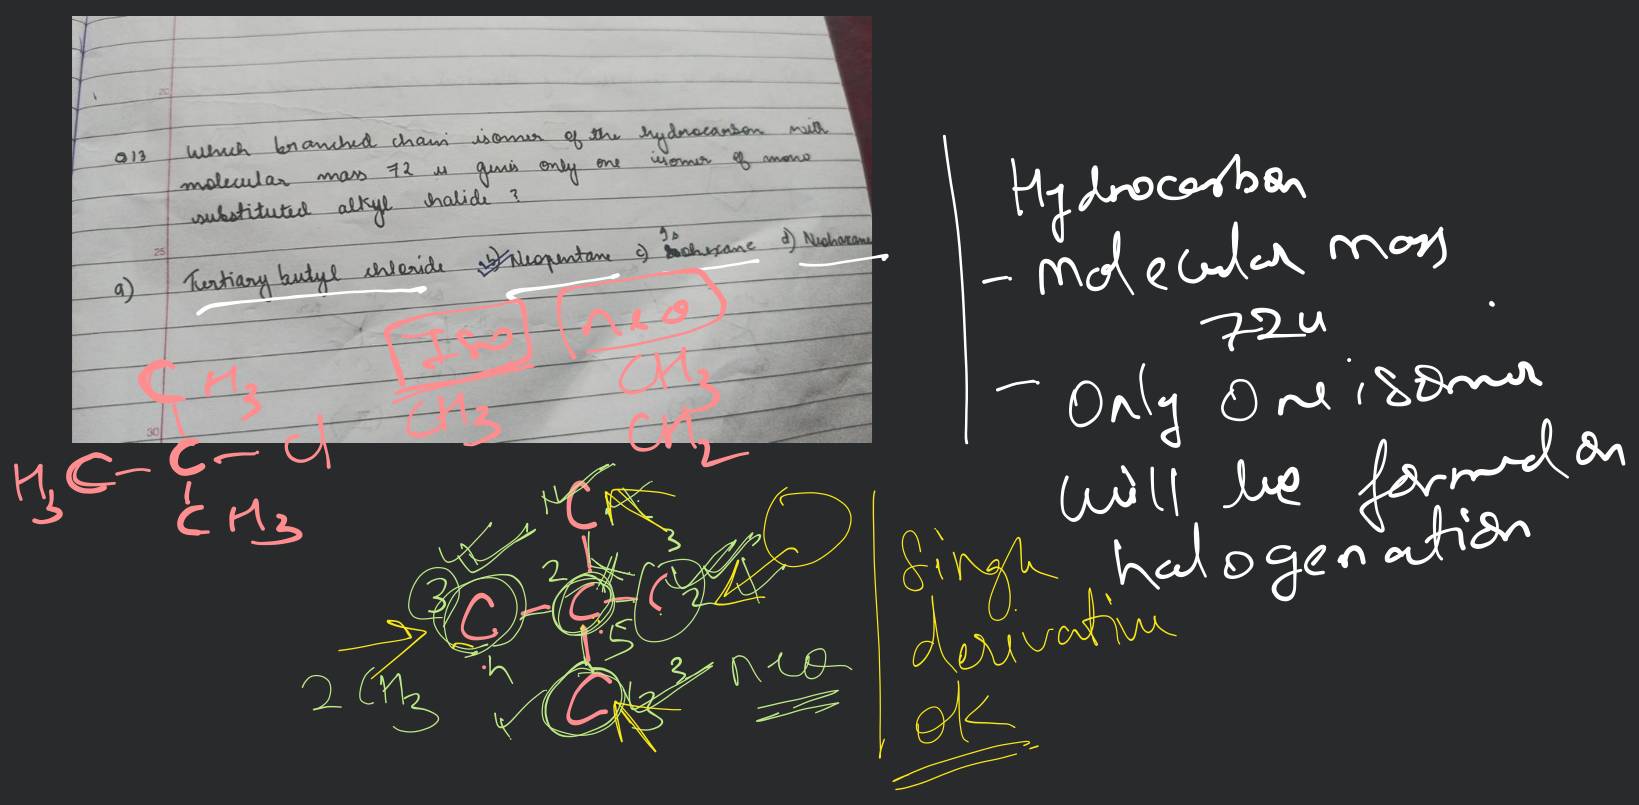 Q13 Which branched chain isomer of the hydrocarbon with
molecular mass 72 u gives only one isomer of mono
substituted alkyl halide ?
a) Tertiary butyl chloride b) Neopentane c) Isohexane d) Neohexane
25
30
Iso
neo
CH3
CH3
CH2
CH3
H3C - C - Cl
CH3
C
3 C - 2 C - C
C
2 CH3
neo
Hydrocarbon
- Molecular mass
72u
- Only one isomer
will be formed on
halogenation
Singl
derivative
ok